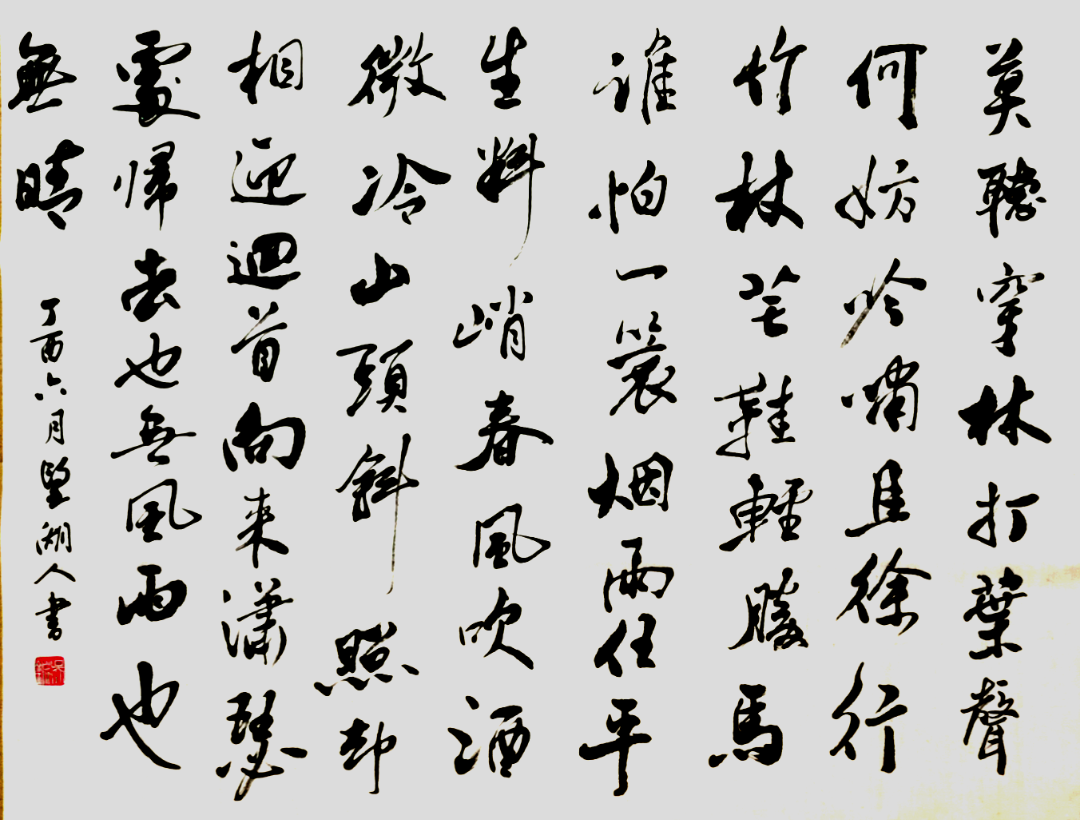 莫聽穿林打葉聲
何妨吟嘯且徐行
竹杖芒鞋輕勝馬
誰怕一蓑烟雨任平
生料峭春風吹酒
微冷山頭斜照却
相迎迴首向来瀟瑟
處歸去也無風雨也
無晴
丁酉六月湖人書